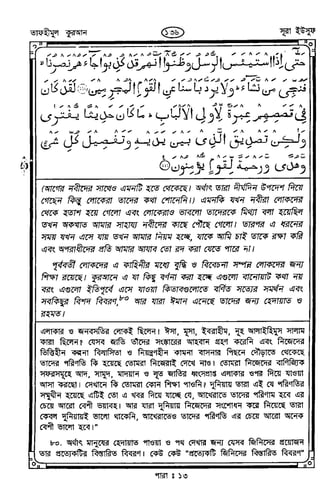 তাফহীমুল কুরআন
১৩৬
সূরা ইউসুফ
حَتّٰى اِذَا اسْتَيْـَٔسَ الرُّسُلُ وَظَنُّوْۤا اَنَّهُمْ قَدْ كُذِبُوْا جَآءَهُمْ نَصْرُنَا
فَنُجِّىَ مَنْ نَّشَآءُ ؕ وَلَا يُرَدُّ بَاْسُنَا عَنِ الْقَوْمِ الْمُجْرِمِيْنَ ۝ لَقَدْ كَانَ
فِىْ قَصَصِهِمْ عِبْرَةٌ لِّاُولِى الْاَلْبَابِ ؕ مَا كَانَ حَدِيْثًا يُّفْتَرٰى
وَلٰكِنْ تَصْدِيْقَ الَّذِىْ بَيْنَ يَدَيْهِ وَتَفْصِيْلَ كُلِّ شَىْءٍ
وَّهُدًى وَّرَحْمَةً لِّقَوْمٍ يُّؤْمِنُوْنَ ۝
(আগের নবীদের সাথেও এমনটি হতে থেকেছে। অর্থাৎ তারা দীর্ঘদিন উপদেশ দিয়ে
গেছেন কিন্তু লোকেরা তাদের কথা শোনেনি।) এমনকি যখন নবীরা লোকদের
থেকে হতাশ হয়ে গেলো এবং লোকেরাও ভাবলো তাদেরকে মিথ্যা বলা হয়েছিল
তখন অকস্মাত আমার সাহায্য নবীদের কাছে পৌঁছে গেলো। তারপর এ ধরনের
সময় যখন এসে যায় তখন আমার নিয়ম হচ্ছে, যাকে আমি চাই তাকে রক্ষা করি
এবং অপরাধীদের প্রতি আমার আযাব তো রদ করা যেতে পারে না।
পূর্ববর্তী লোকদের এ কাহিনীর মধ্যে বুদ্ধি ও বিবেচনা সম্পন্ন লোকদের জন্য
শিক্ষা রয়েছে। কুরআনে এ যা কিছু বর্ণনা করা হচ্ছে এগুলো বানোয়াট কথা নয়
বরং এগুলো ইতিপূর্বে এসে যাওয়া কিতাবগুলোতে বর্ণিত সত্যের সমর্থন এবং
সবকিছুর বিশদ বিবরণ,৮০ আর যারা ঈমান এনেছে তাদের জন্য হেদায়াত ও
রহমত।
এলাকার ও জনবসতির লোকই ছিলেন। ঈসা, মূসা, ইবরাহীম, নূহ আলাইহিমুস সালাম
কারা ছিলেন? যেসব জাতি তাঁদের সংস্কারের আহবান গ্রহণ করেনি এবং নিজেদের
ভিত্তিহীন কল্পনা বিলাসিতা ও নিয়ন্ত্রণহীন কামনা বাসনার পিছনে দৌড়াতে থেকেছে
তাদের পরিণতি কি হয়েছে তোমরা নিজেরাই দেখে নাও। তোমরা নিজেদের বাণিজ্যিক
সফরসমূহে আদ, সামূদ, মাদয়ান ও লূত জাতির ধ্বংসপ্রাপ্ত এলাকার ওপর দিয়ে যাওয়া
আসা করছো। সেখানে কি তোমরা কোন শিক্ষা পাওনি। দুনিয়ায় তারা এই যে পরিণতির
সম্মুখীন হয়েছে এটিই তো এ খবর দিয়ে যাচ্ছে যে, আখেরাতে তাদের পরিণাম হবে এর
চেয়ে আরো বেশী ভয়াবহ। আর যারা দুনিয়ায় নিজেদের সংশোধন করে নিয়েছে তারা
কেবল দুনিয়াতেই ভালো থাকেনি, আখেরাতেও তাদের পরিণতি এর চেয়ে আরো অনেক
বেশী ভালো হবে।"
৮০. অর্থাৎ মানুষের হেদায়াত পাওয়া ও পথ দেখার জন্য যেসব জিনিসের প্রয়োজন
তার প্রত্যেকটির বিস্তারিত বিবরণ। কেউ কেউ "প্রত্যেকটি জিনিসের বিস্তারিত বিবরণ"
পারা : ১৩